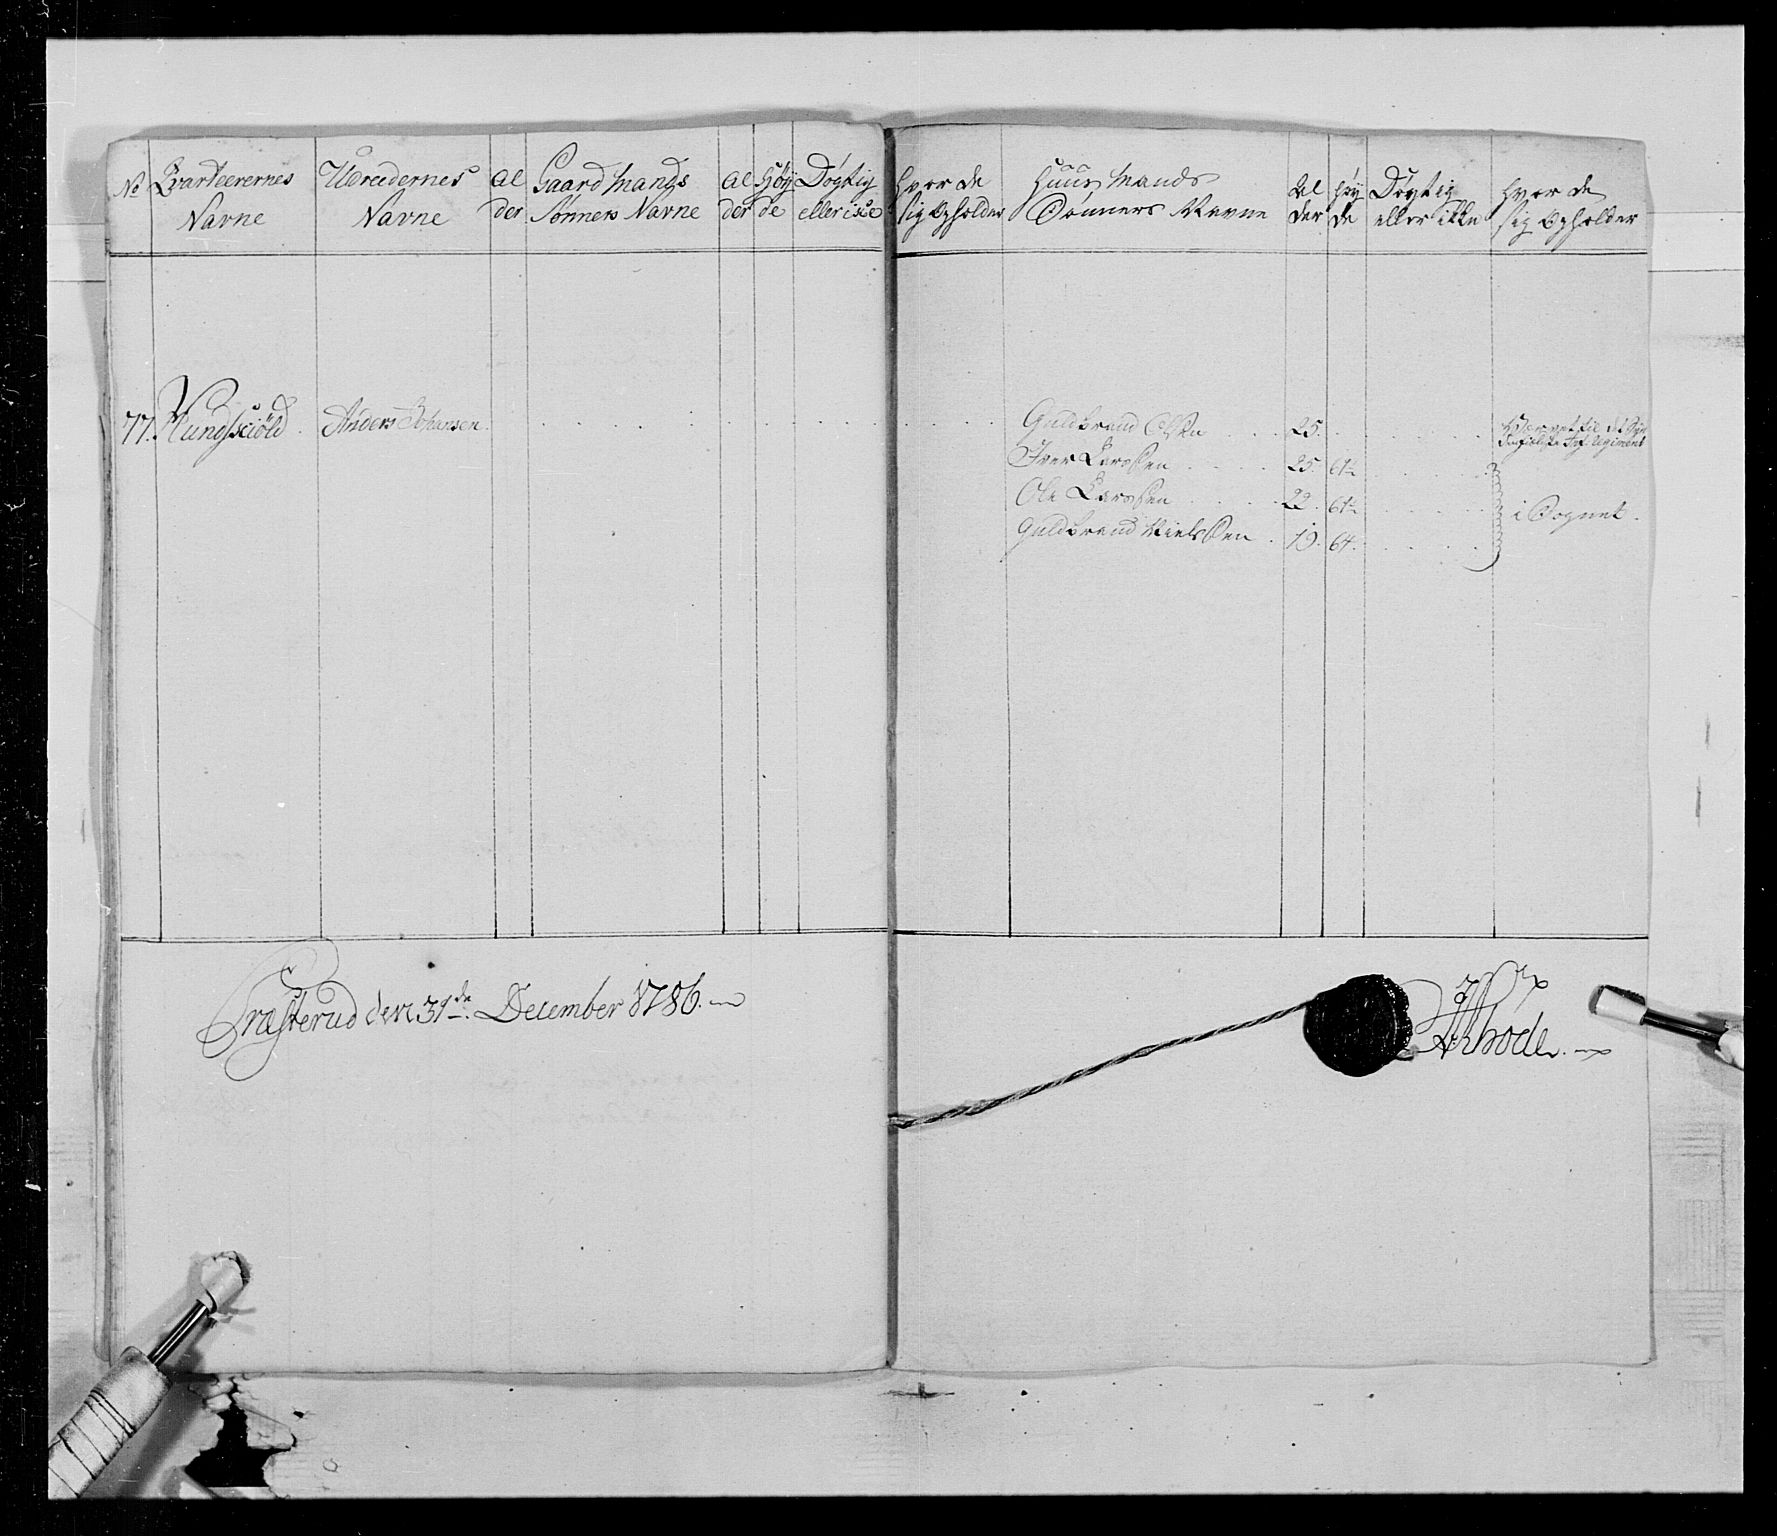 No Qvarteerernes Navne
Udreedernes Navne
Al der
Gaardmands Sønners Navne
Al der
Høy de
Døgtig eller icke
Hvor de sig Opholder
Huus Mands Sønners Navne
Al der
Høy de
Døgtig eller ikke
Hvor de sig Opholder
77. Hundskiöld Anders Johansen
Guldbrand Olsen 25.
Iver Larssen 25.
Ole Larssen 22.
Guldbrand Nielssen 19. 64.
i Sognet.
Præsterud den 31de December 1786.
Rhode